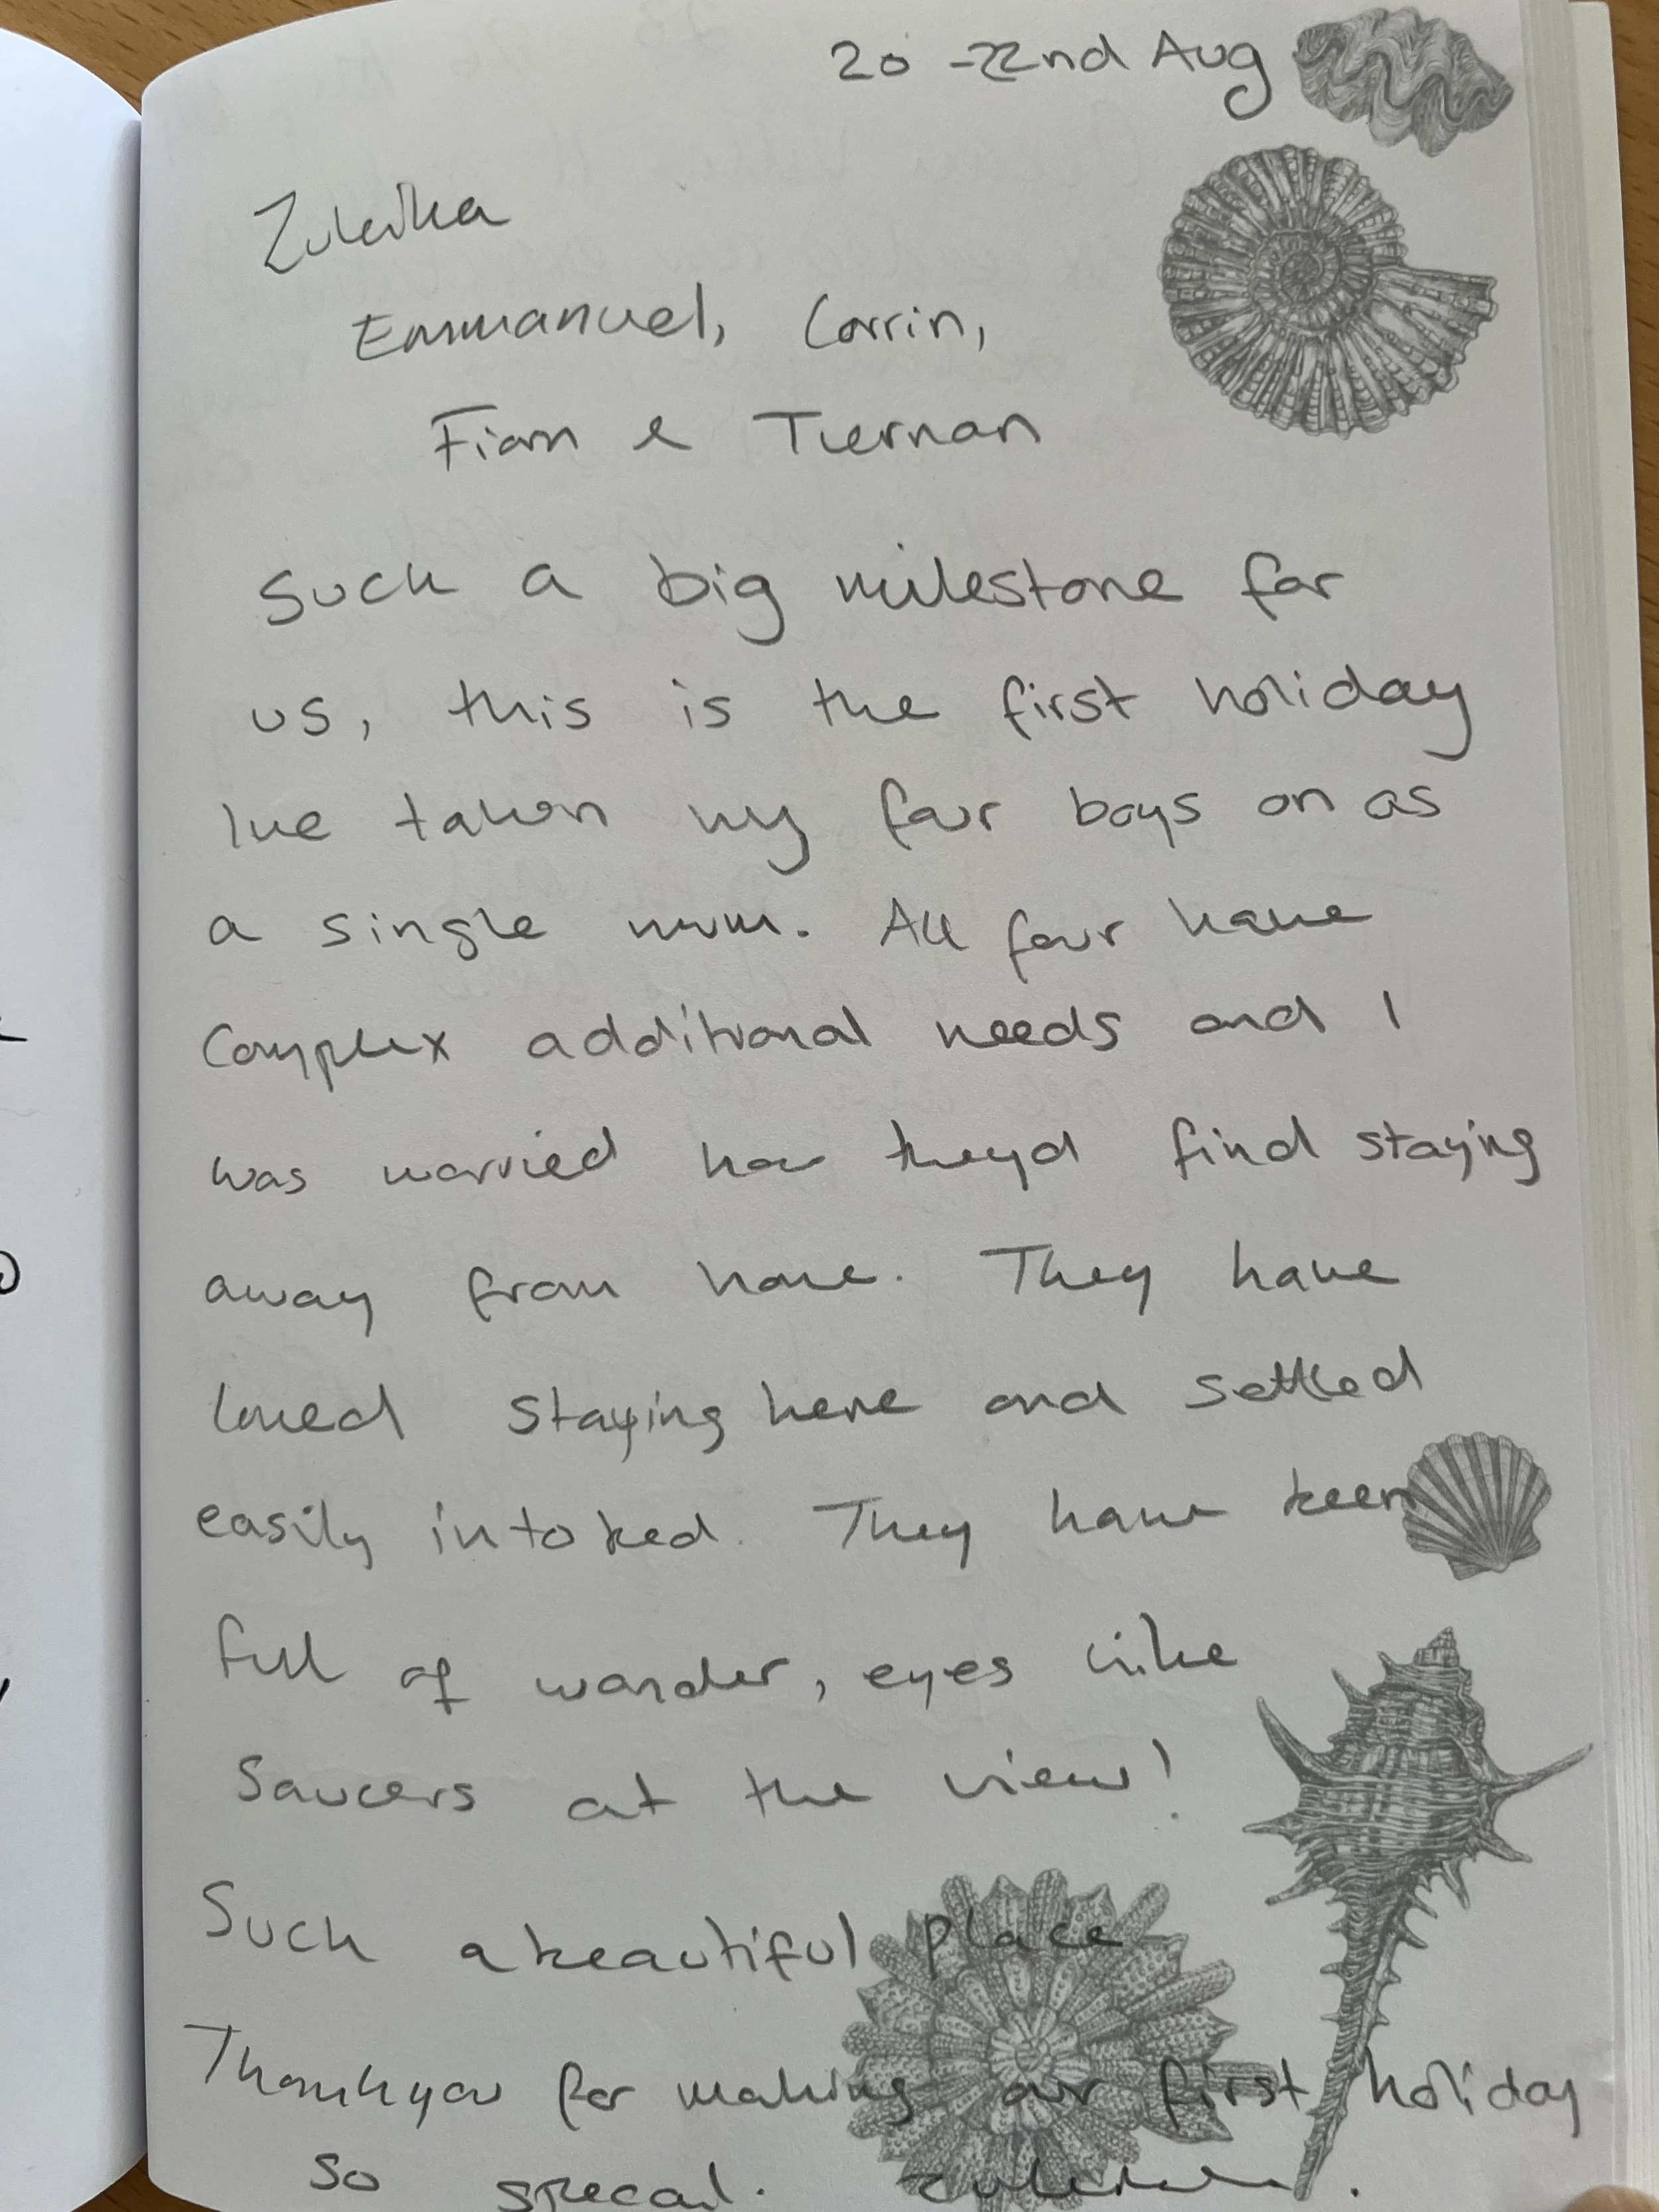 20 - 22nd Aug
Zuleika
Emmanuel, Corrin,
Fionn & Tiernan
Such a big milestone for
us, this is the first holiday
Ive taken my four boys on as
a single mum. All four have
Complex additional needs and I
was worried how theyd find staying
away from home. They have
loved staying here and settled
easily into bed. They have been
full of wonder, eyes like
Saucers at the view!
Such a beautiful place
Thankyou for making our first holiday
so special. Zuleika.